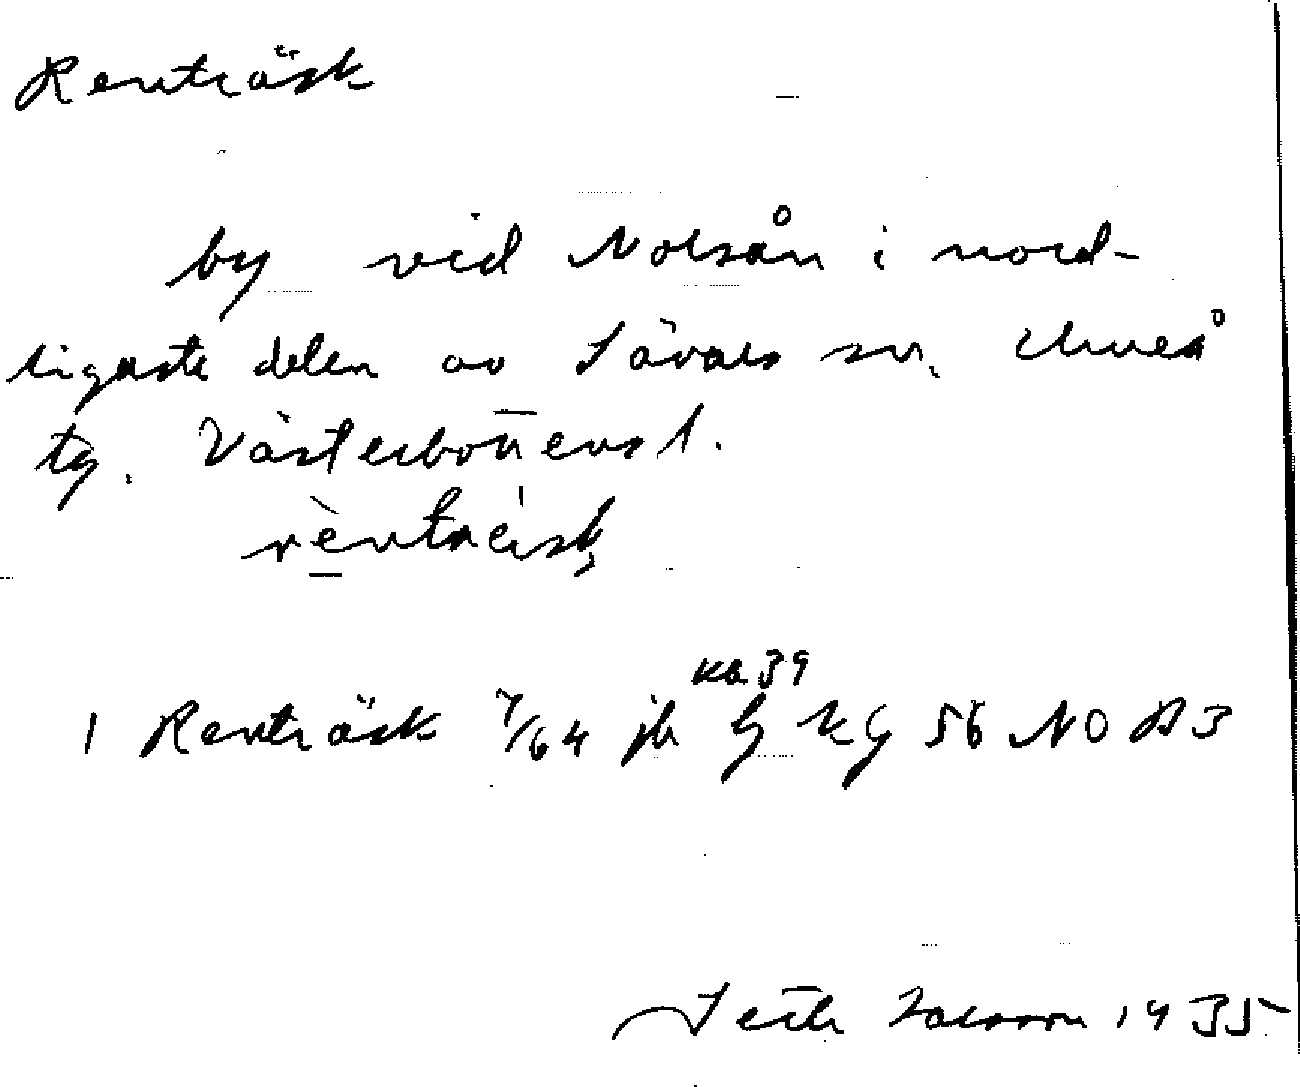 Renträsk
by vid Norsån i nord-
ligaste delen av Sävars sn. Umeå
tg. Västerbottens l.
rènträsk
ka 39
1 Renträsk 7/64 jb kg 56 NO A3
Seth Larsson 1935